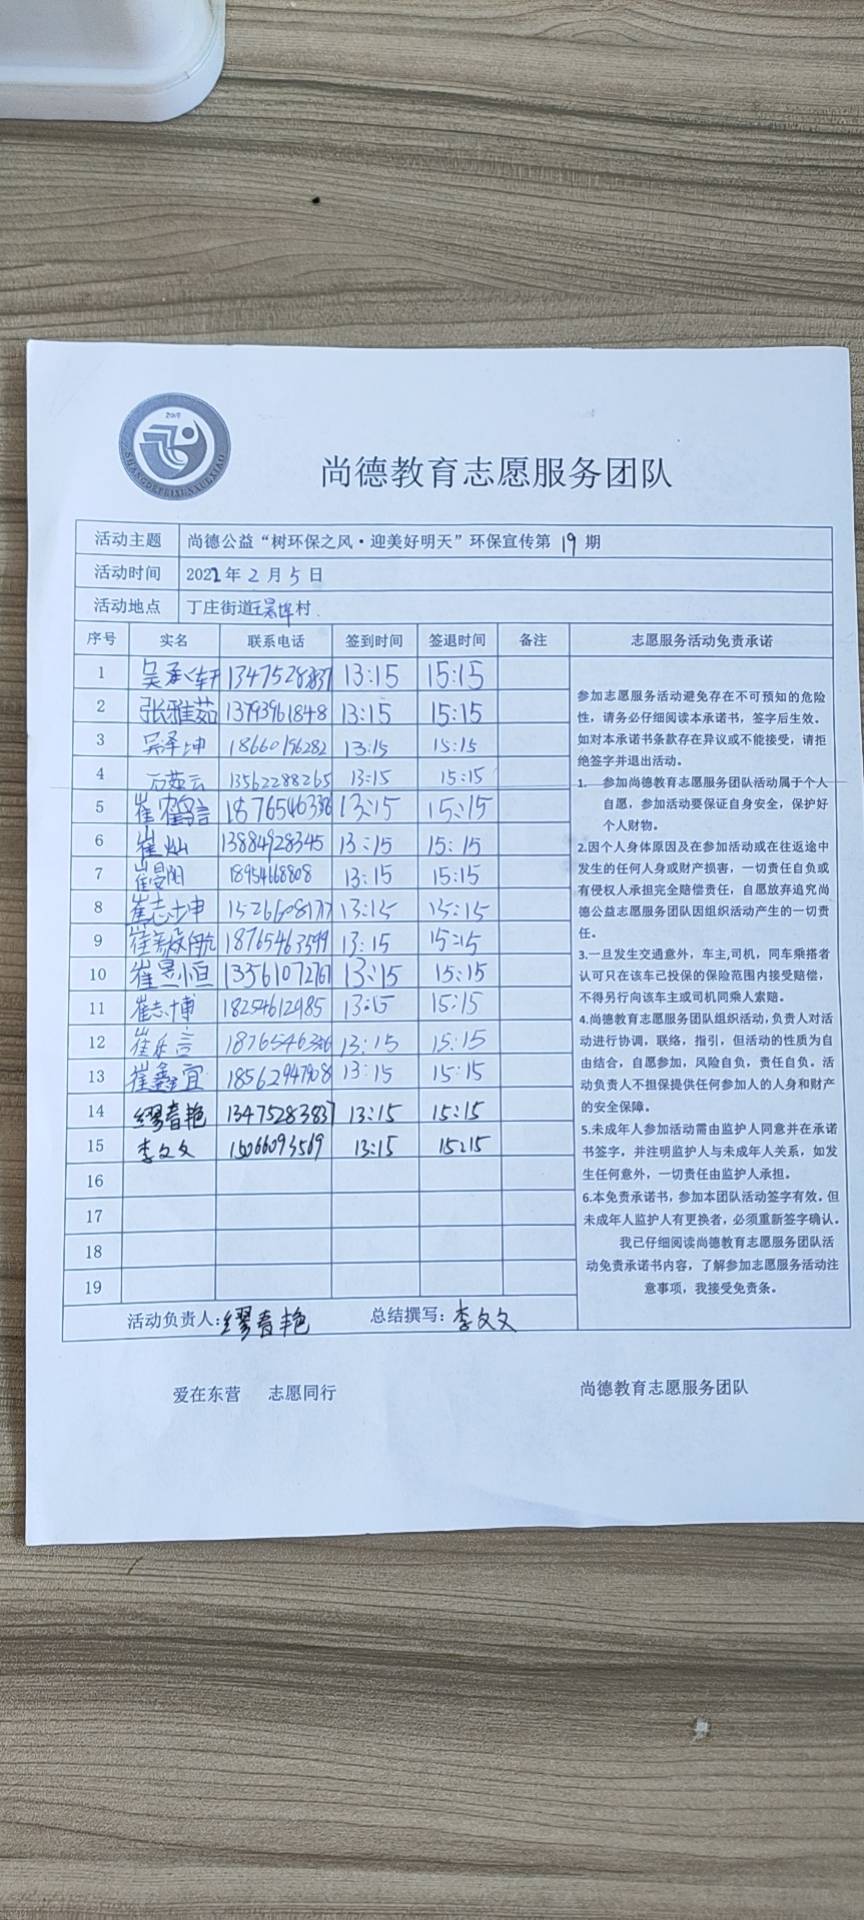 2017
SHANGDEPEIXUNXUEXIAO
尚德教育志愿服务团队
活动主题 尚德公益“树环保之风·迎美好明天”环保宣传第 19 期
活动时间 2022年 2 月 5 日
活动地点 丁庄街道 村
序号 实名 联系电话 签到时间 签退时间 备注 志愿服务活动免责承诺
1 吴承轩 13:15 15:15
2 张雅茹 13793961848 13:15 15:15
3 吴泽坤 18660196282 13:15 15:15
4 13562288265 13:15 15:15
5 13:15 15:15
6 崔灿 13884928345 13:15 15:15
7 崔晏阳 18954668808 13:15 15:15
8 崔志坤 13:15 15:15
9 18765463599 13:15 15:15
10 13561072761 13:15 15:15
11 崔志博 18254612985 13:15 15:15
12 13:15 15:15
13 崔鑫宜 18562947908 13:15 15:15
14 缪春艳 13475283837 13:15 15:15
15 李文文 15066093569 13:15 15:15
16
17
18
19
参加志愿服务活动避免存在不可预知的危险
性，请务必仔细阅读本承诺书，签字后生效。
如对本承诺书条款存在异议或不能接受，请拒
绝签字并退出活动。
1. 参加尚德教育志愿服务团队活动属于个人
自愿，参加活动要保证自身安全，保护好
个人财物。
2.因个人身体原因及在参加活动或在往返途中
发生的任何人身或财产损害，一切责任自负或
有侵权人承担完全赔偿责任，自愿放弃追究尚
德公益志愿服务团队因组织活动产生的一切责
任。
3.一旦发生交通意外，车主,司机，同车乘搭者
认可只在该车已投保的保险范围内接受赔偿，
不得另行向该车主或司机同乘人索赔。
4.尚德教育志愿服务团队组织活动,负责人对活
动进行协调，联络，指引，但活动的性质为自
由结合，自愿参加，风险自负，责任自负。活
动负责人不担保提供任何参加人的人身和财产
的安全保障。
5.未成年人参加活动需由监护人同意并在承诺
书签字，并注明监护人与未成年人关系，如发
生任何意外，一切责任由监护人承担。
6.本免责承诺书，参加本团队活动签字有效。但
未成年人监护人有更换者，必须重新签字确认。
我已仔细阅读尚德教育志愿服务团队活
动免责承诺书内容，了解参加志愿服务活动注
意事项，我接受免责条。
活动负责人:缪春艳 总结撰写：李文文
爱在东营 志愿同行 尚德教育志愿服务团队